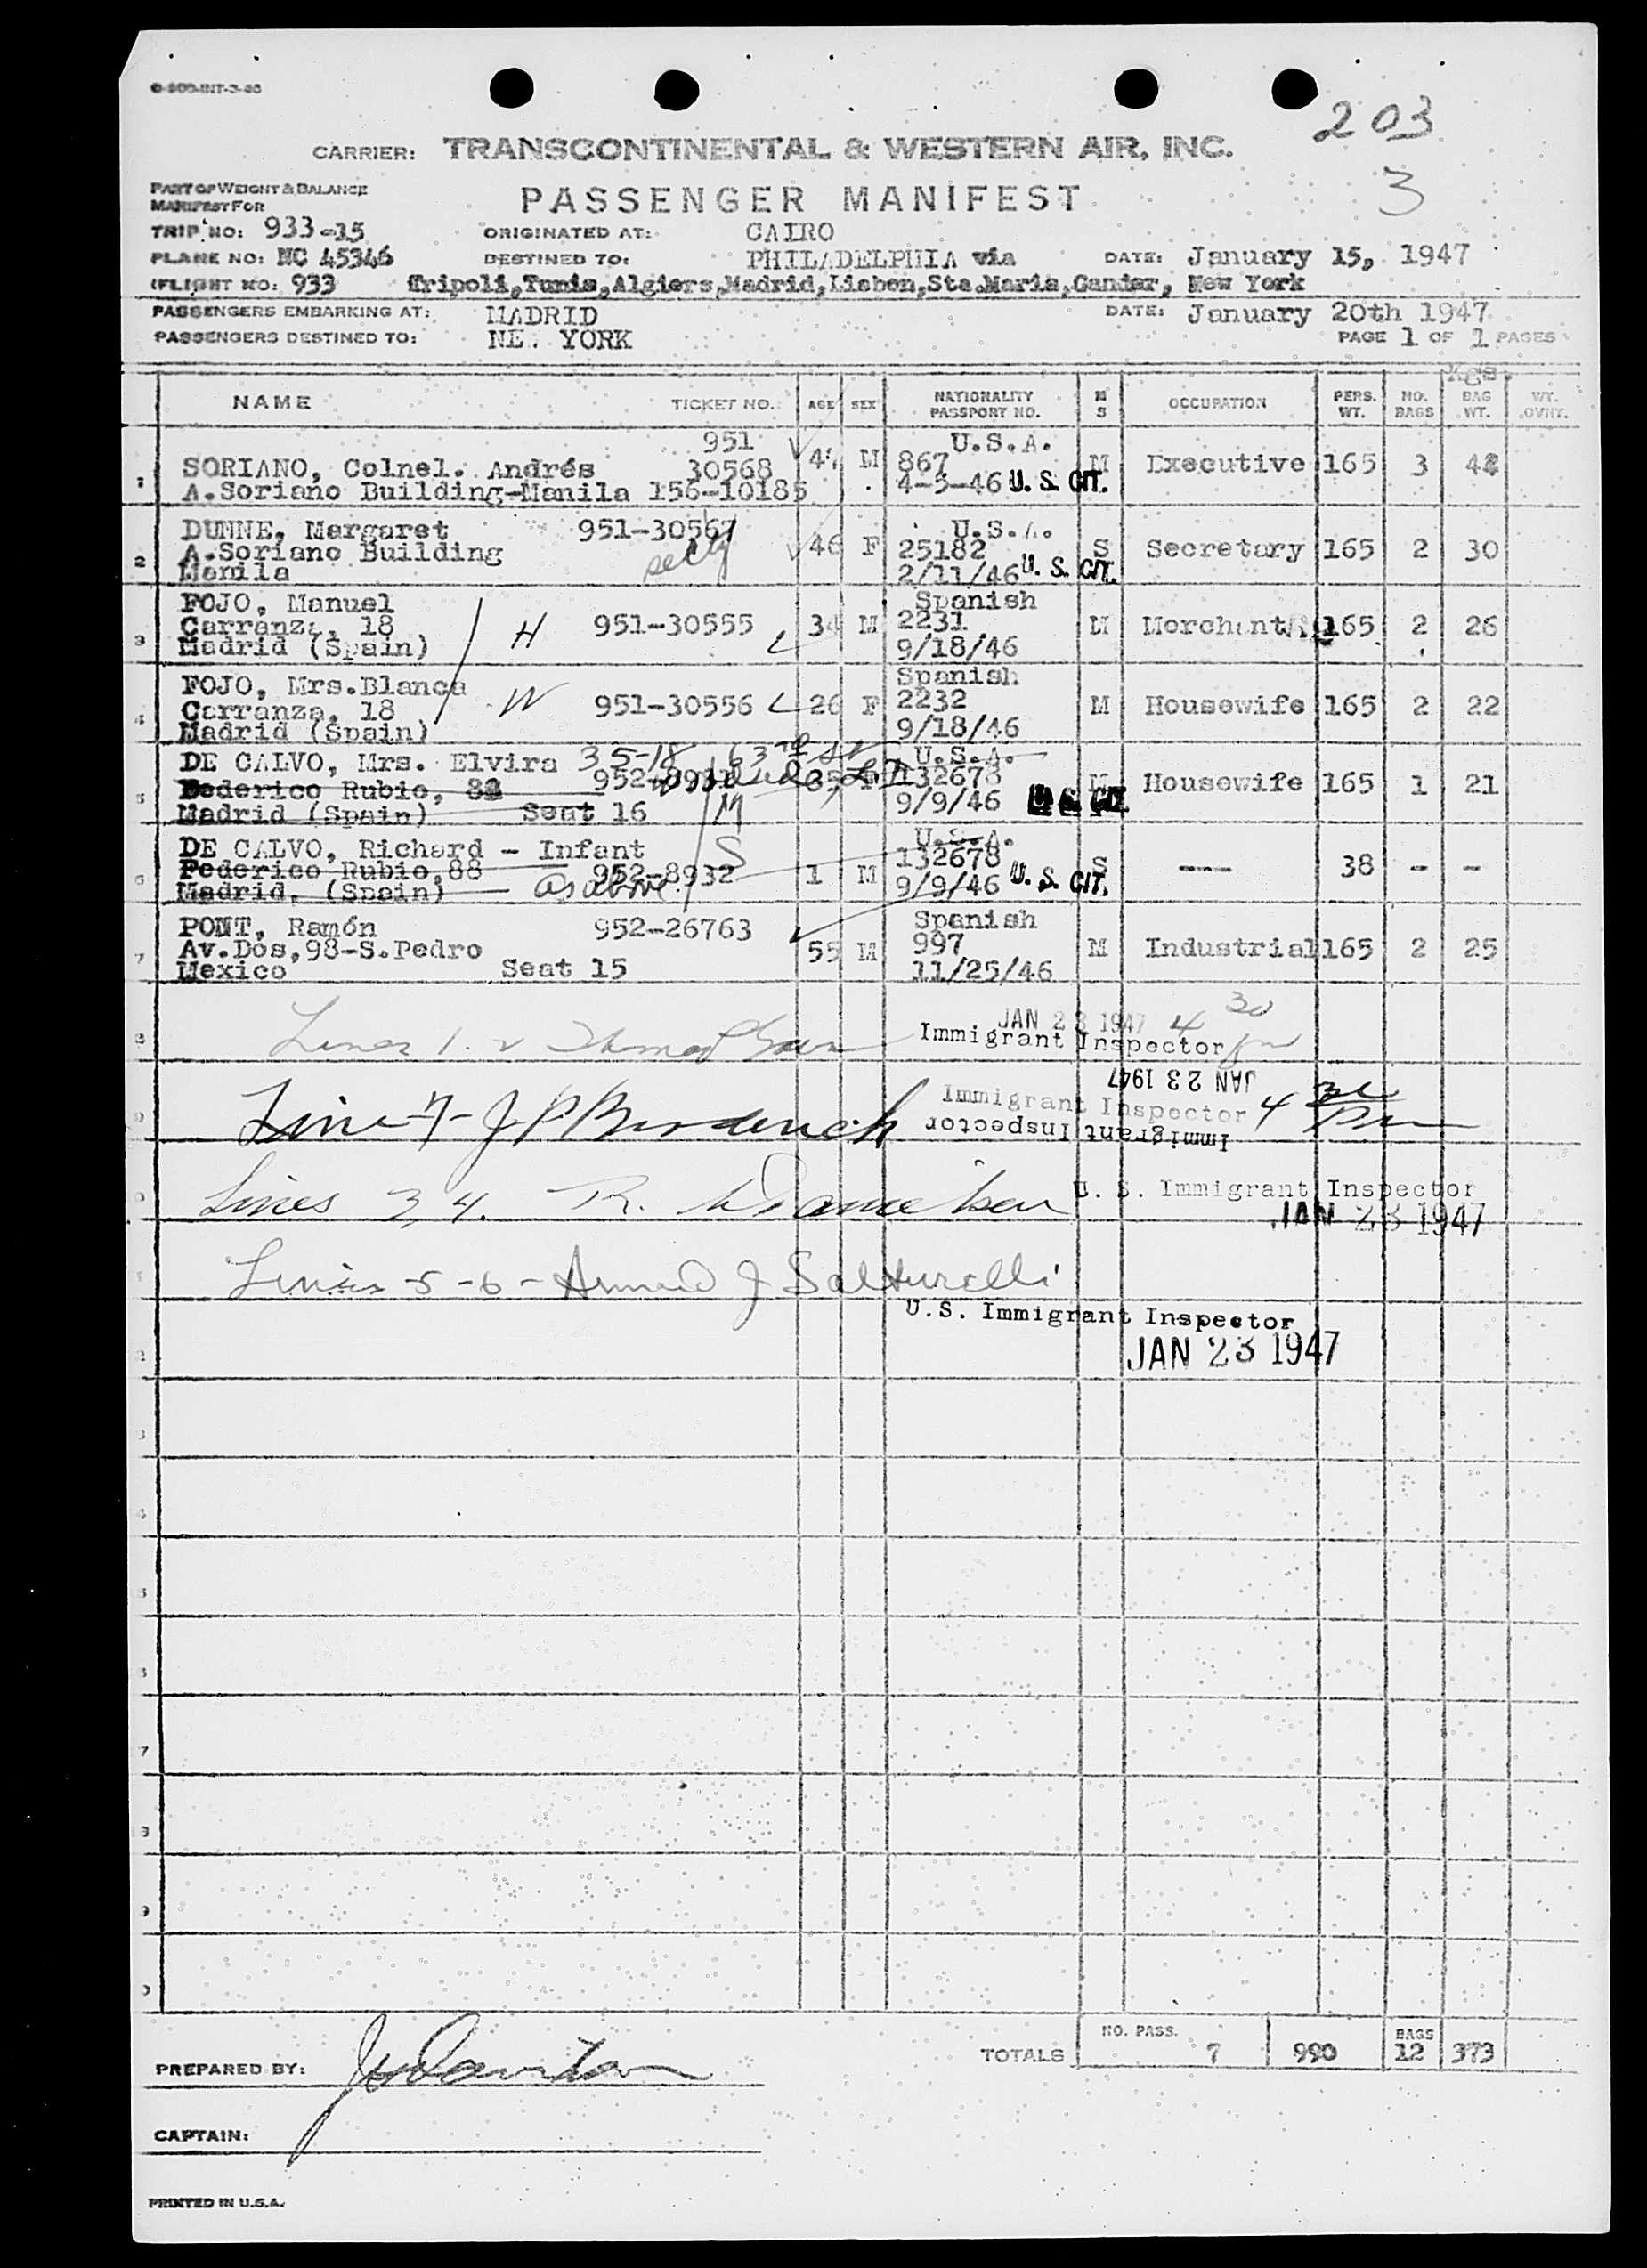 203
CARRIER: TRANSCONTINENTAL & WESTERN AIR, INC.
3
PART OF WEIGHT & BALANCE
MANIFEST FOR
PASSENGER MANIFEST
TRIP NO: 933-15 ORIGINATED AT: CAIRO
PLANE NO: NC 45346 DESTINED TO: PHILADELPHIA via DATE: January 15, 1947
FLIGHT NO: 933 Tripoli,Tunis,Algiers,Madrid,Lisbon,Sta.Maria,Gander, New York
PASSENGERS EMBARKING AT: MADRID DATE: January 20th 1947
PASSENGERS DESTINED TO: NE. YORK PAGE 1 OF 1 PAGES
Kgs.
NAME TICKET NO. AGE SEX NATIONALITY PASSPORT NO. M S OCCUPATION PERS. WT. NO. BAGS BAG WT. WT. OVHT.
951 U.S.A.
1 SORIANO, Colnel. Andrés 30568 M 867 M Executive 165 3
A.Soriano Building-Manila 156-10185 4-3-46 U. S. CIT.
DUNNE, Margaret 951-30567 U.S.A.
A.Soriano Building secty 46 F 25182 S Secretary 165 2 30
2 Manila 2/11/46 U. S. CIT.
FOJO, Manuel Spanish
Carranza, 18 H 951-30555 34 M 2231 M Merchant 165 2 26
3 Madrid (Spain) 9/18/46
FOJO, Mrs.Blanca Spanish
4 Carranza, 18 W 951-30556 26 F 2232 M Housewife 165 2 22
Madrid (Spain) 9/18/46
DE CALVO, Mrs. Elvira 35-18 63rd St U.S.A.
5 Federico Rubio, 952-8931 35 F 132678 M Housewife 165 1 21
Madrid (Spain) Seat 16 M 9/9/46 U. S. CIT.
DE CALVO, Richard - Infant S U.S.A.
6 Federico Rubio,88 952-8932 1 M 132678 S --- 38 - -
Madrid, (Spain) as above 9/9/46 U. S. CIT.
PONT, Ramón 952-26763 Spanish
7 Av.Dos,98-S.Pedro 55 M 997 M Industrial 165 2 25
Mexico Seat 15 11/25/46
JAN 23 1947 4 30
Lines 1. 2 Immigrant Inspector pm
JAN 23 1947
Line 7- J P Immigrant Inspector 4 30
Immigrant Inspector
Lines 3, 4. R. U. S. Immigrant Inspector
JAN 23 1947
Lines -5-6- J
U.S. Immigrant Inspector
JAN 23 1947
NO. PASS. BAGS
TOTALS 7 990 12 373
PREPARED BY:
CAPTAIN:
PRINTED IN U.S.A.